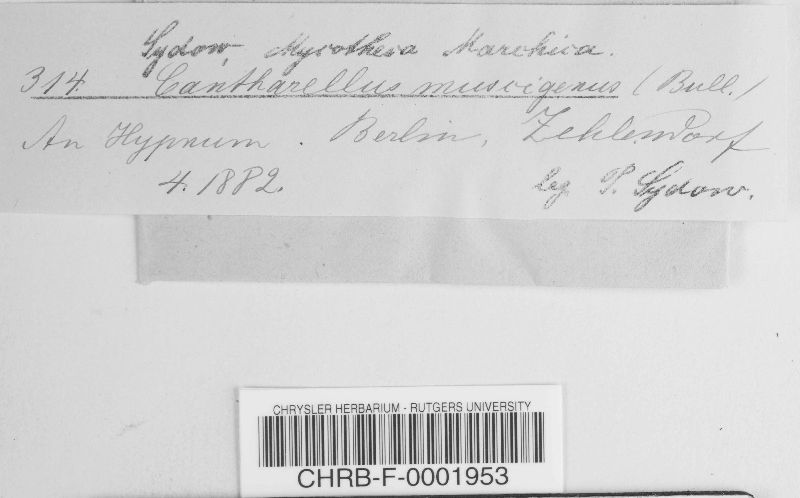 Sydow, Mycotheca Marchica.
314. Cantharellus muscigenus (Bull.)
An Hypnum. Berlin, Zehlendorf
4. 1882. leg P. Sydow.
CHRYSLER HERBARIUM - RUTGERS UNIVERSITY
CHRB-F-0001953